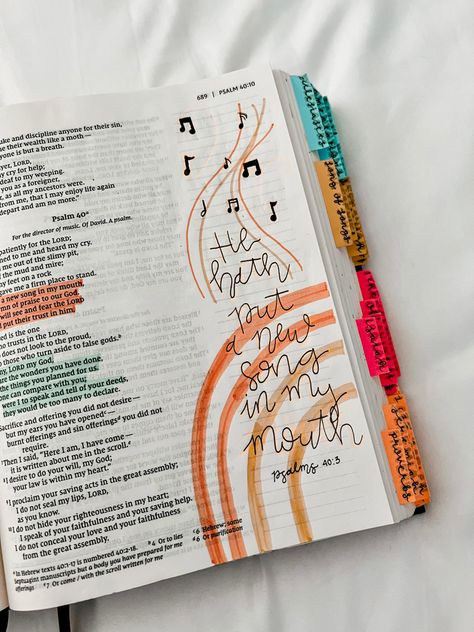 689 | PSALM 40:10
uke and discipline anyone for their sin,
e their wealth like a moth —
yone is but a breath.
yer, LORD,
y cry for help;
deaf to my weeping.
you as a foreigner,
, as all my ancestors were.
from me, that I may enjoy life again
depart and am no more."
Psalm 40ᵃ
For the director of music. Of David. A psalm.
patiently for the LORD;
ned to me and heard my cry.
me out of the slimy pit,
he mud and mire;
my feet on a rock
gave me a firm place to stand.
a new song in my mouth,
mn of praise to our God.
will see and fear the LORD
put their trust in him.
ed is the one
o trusts in the LORD,
o does not look to the proud,
o those who turn aside to false gods.ᵇ
y, LORD my God,
are the wonders you have done,
the things you planned for us.
one can compare with you;
were I to speak and tell of your deeds,
they would be too many to declare.
Sacrifice and offering you did not desire —
but my ears you have opened —
burnt offerings and sin offerings you did not
require.
Then I said, "Here I am, I have come —
it is written about me in the scroll.
I desire to do your will, my God;
your law is within my heart."
I proclaim your saving acts in the great assembly;
I do not seal my lips, LORD,
as you know.
I do not hide your righteousness in my heart;
I speak of your faithfulness and your saving help.
I do not conceal your love and your faithfulness
from the great assembly.
In Hebrew texts 40:1-17 is numbered 40:2-18. 4 Or to lies 6 Hebrew; some
Septuagint manuscripts but a body you have prepared for me 6 Or purification
offerings 7 Or come / with the scroll written for me
He
hath
put
a new
song
in my
mouth
psalms 40:3
ecclesiastes
song of songs
proverbs